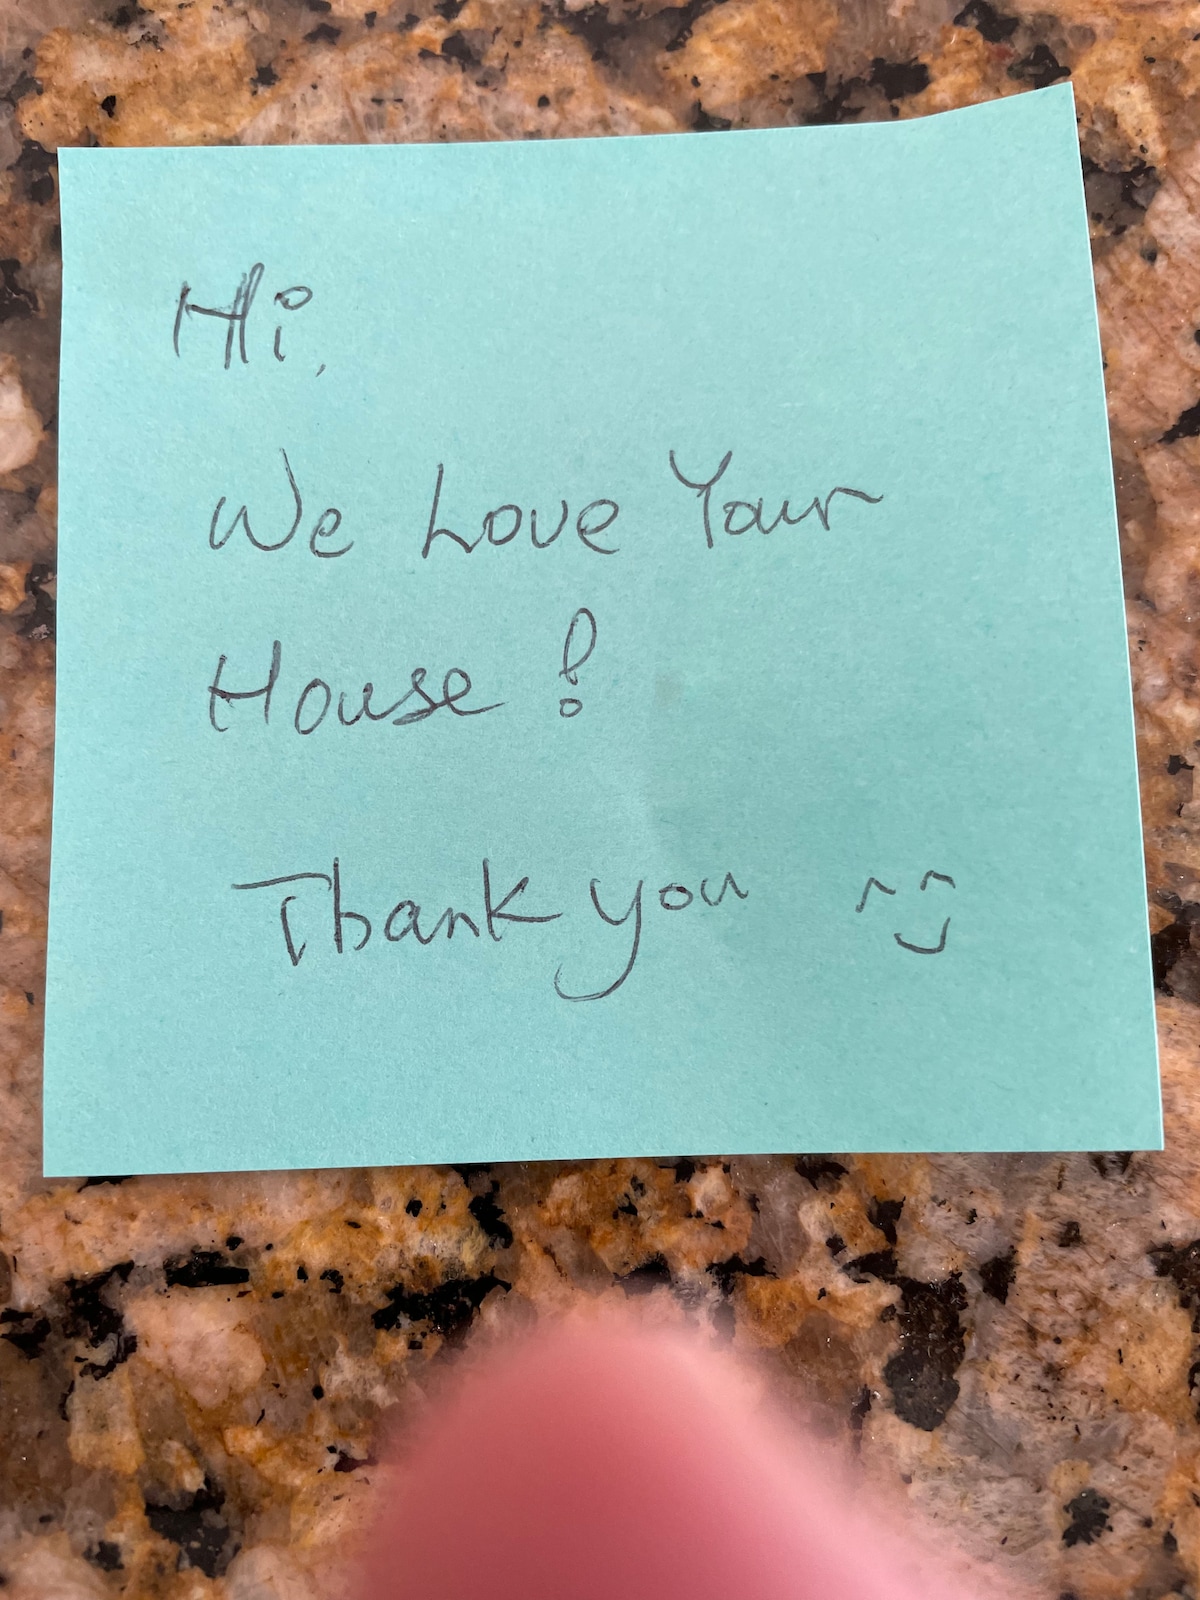 Hi,
We Love Your
House!
Thank you ^^